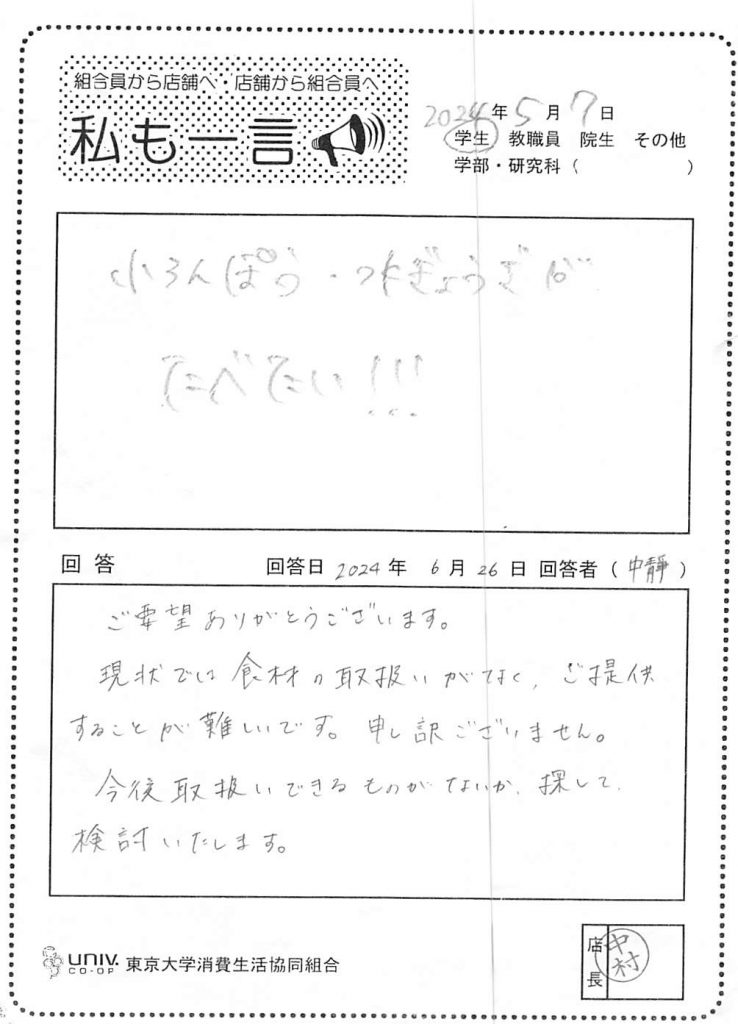 組合員から店舗へ・店舗から組合員へ
私も一言
2024年5月7日
学生 教職員 院生 その他
学部・研究科( )
小ろんぽう・水ぎょうざが
たべたい!!!
回答 回答日 2024年 6月26日 回答者(中靜)
ご要望ありがとうございます。
現状では食材の取扱いがなく、ご提供
することが難しいです。申し訳ございません。
今後取扱いできるものがないか、探して、
検討いたします。
UNIV. CO-OP 東京大学消費生活協同組合
店長 中村